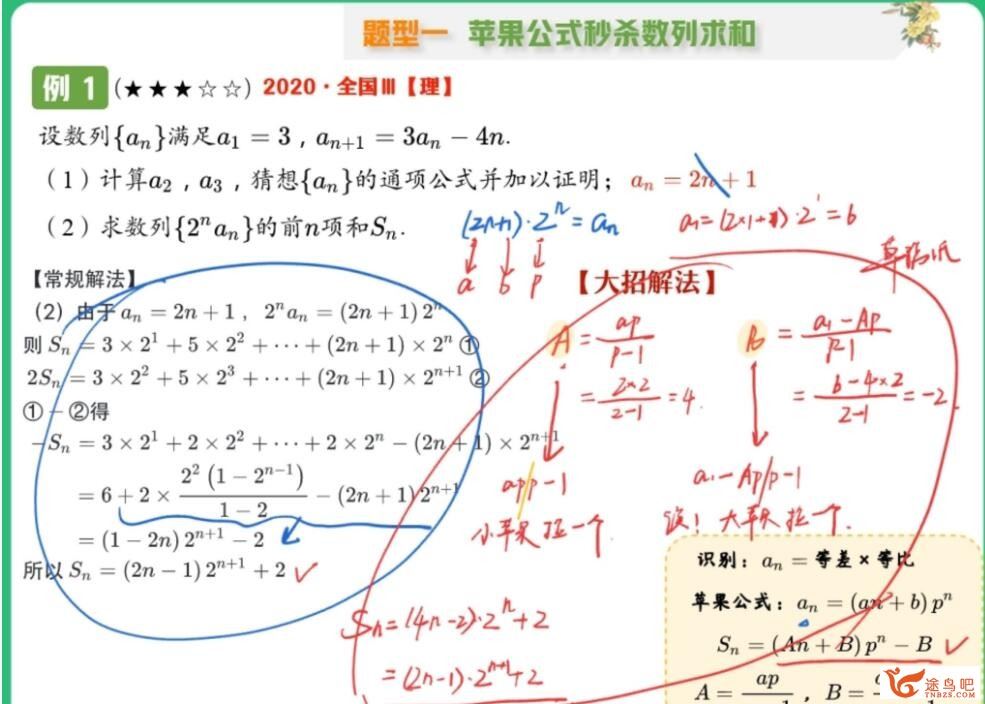 题型一 苹果公式秒杀数列求和
例 1 (★★★☆☆) 2020·全国Ⅲ【理】
设数列{aₙ}满足a₁ = 3 , aₙ₊₁ = 3aₙ − 4n.
（1）计算a₂ , a₃ , 猜想{aₙ}的通项公式并加以证明; aₙ = 2n + 1
（2）求数列{2ⁿaₙ}的前n项和Sₙ.
(2n+1)·2ⁿ = aₙ
a₁ = (2×1+1)·2¹ = 6
a b p
草稿纸
【常规解法】
(2) 由于 aₙ = 2n + 1 , 2ⁿaₙ = (2n + 1) 2ⁿ
则 Sₙ = 3 × 2¹ + 5 × 2² + ⋯ + (2n + 1) × 2ⁿ ①
2Sₙ = 3 × 2² + 5 × 2³ + ⋯ + (2n + 1) × 2ⁿ⁺¹ ②
① − ②得
−Sₙ = 3 × 2¹ + 2 × 2² + ⋯ + 2 × 2ⁿ − (2n + 1) × 2ⁿ⁺¹
= 6 + 2 × 2² (1 − 2ⁿ⁻¹) / (1 − 2) − (2n + 1) 2ⁿ⁺¹
= (1 − 2n) 2ⁿ⁺¹ − 2
所以 Sₙ = (2n − 1) 2ⁿ⁺¹ + 2 ✓
【大招解法】
A = ap / (p−1)
= 2×2 / (2−1) = 4.
app−1
小苹果 拉一个
B = (a₁−Ap) / (p−1)
= (6−4×2) / (2−1) = −2.
a₁−Ap/p−1
大苹果 拉一个.
Sₙ = (4n−2)·2ⁿ+2
= (2n−1)·2ⁿ⁺¹+2
识别: aₙ = 等差×等比
苹果公式: aₙ = (an + b) pⁿ
Sₙ = (An + B) pⁿ − B ✓
A = ap , B =
途鸟吧
TNBZS.COM